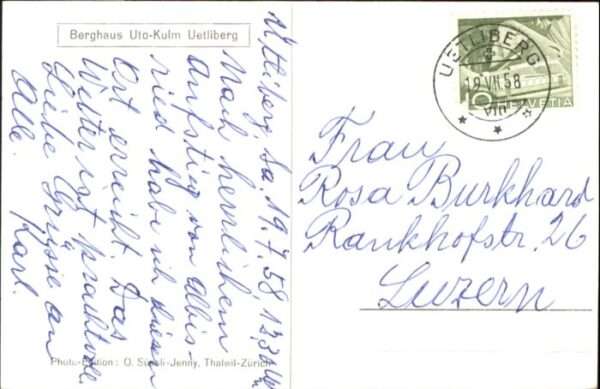 Berghaus Uto-Kulm Uetliberg
Uetliberg, Sa. 19.7.58, 13.30 Uhr
Nach herrlichem
Aufstieg von Albis-
ried habe ich diesen
Ort erreicht. Das
Wetter ist prachtvoll.
Liebe Grüsse an
Alle.
Karl.
Photo-Edition : O. Süssli-Jenny, Thalwil-Zürich
UETLIBERG
19.VII.58
VIII
10
HELVETIA
Frau
Rosa Burkhard
Rankhofstr. 26
Luzern